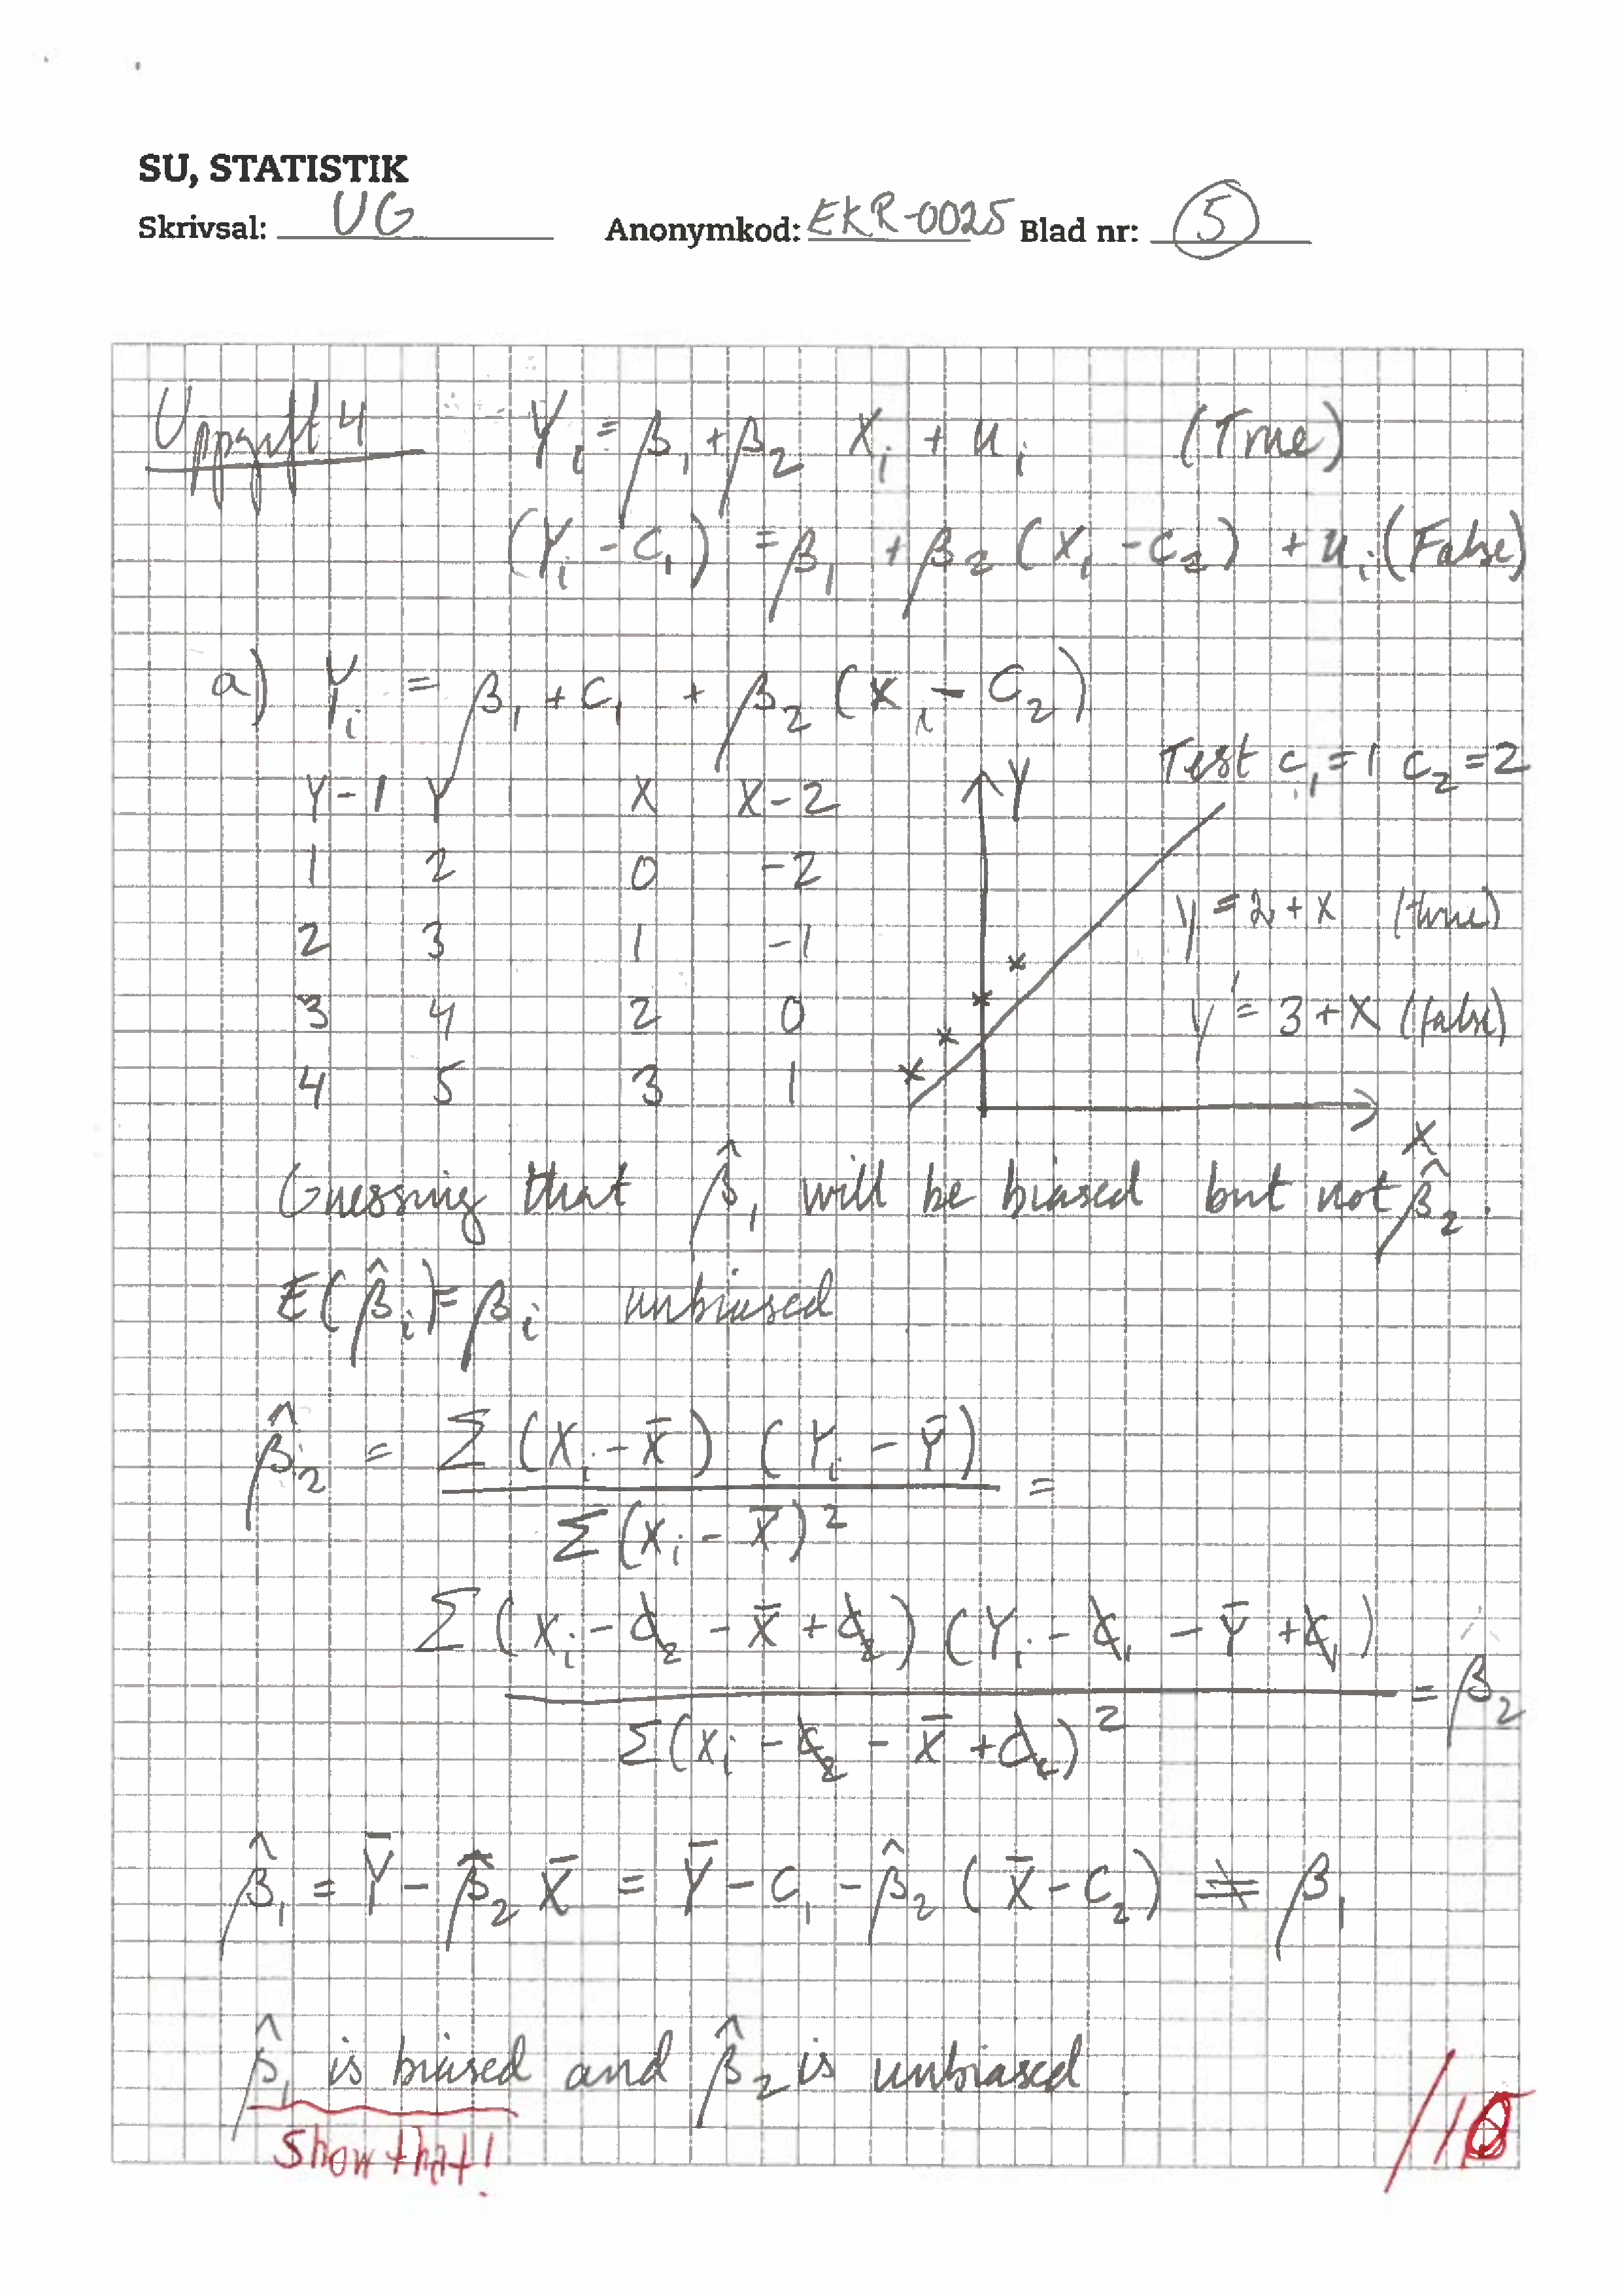 SU, STATISTIK
Skrivsal: UG Anonymkod: EKR-0025 Blad nr: 5
Uppgift 4 Yi = β1 + β2 Xi + ui (True)
(Yi - C1) = β1 + β2 (Xi - C2) + ui (False)
a) Yi = β1 + C1 + β2 (Xi - C2)
Test C1 = 1 C2 = 2
Y-1 Y X X-2 Y
1 2 0 -2
y = 2 + x (true)
2 3 1 -1
3 4 2 0 y' = 3 + x (false)
4 5 3 1
X
Guessing that β̂1 will be biased but not β̂2.
E(β̂i) = βi unbiased
β̂2 = Σ(Xi - X̄)(Yi - Ȳ) / Σ(Xi - X̄)² =
Σ(Xi - C2 - X̄ + C2)(Yi - C1 - Ȳ + C1) / Σ(Xi - C2 - X̄ + C2)² = β̂2
β̂1 = Ȳ - β̂2 X̄ = Ȳ - C1 - β̂2 (X̄ - C2) ≠ β1
β̂1 is biased and β̂2 is unbiased
Show that!